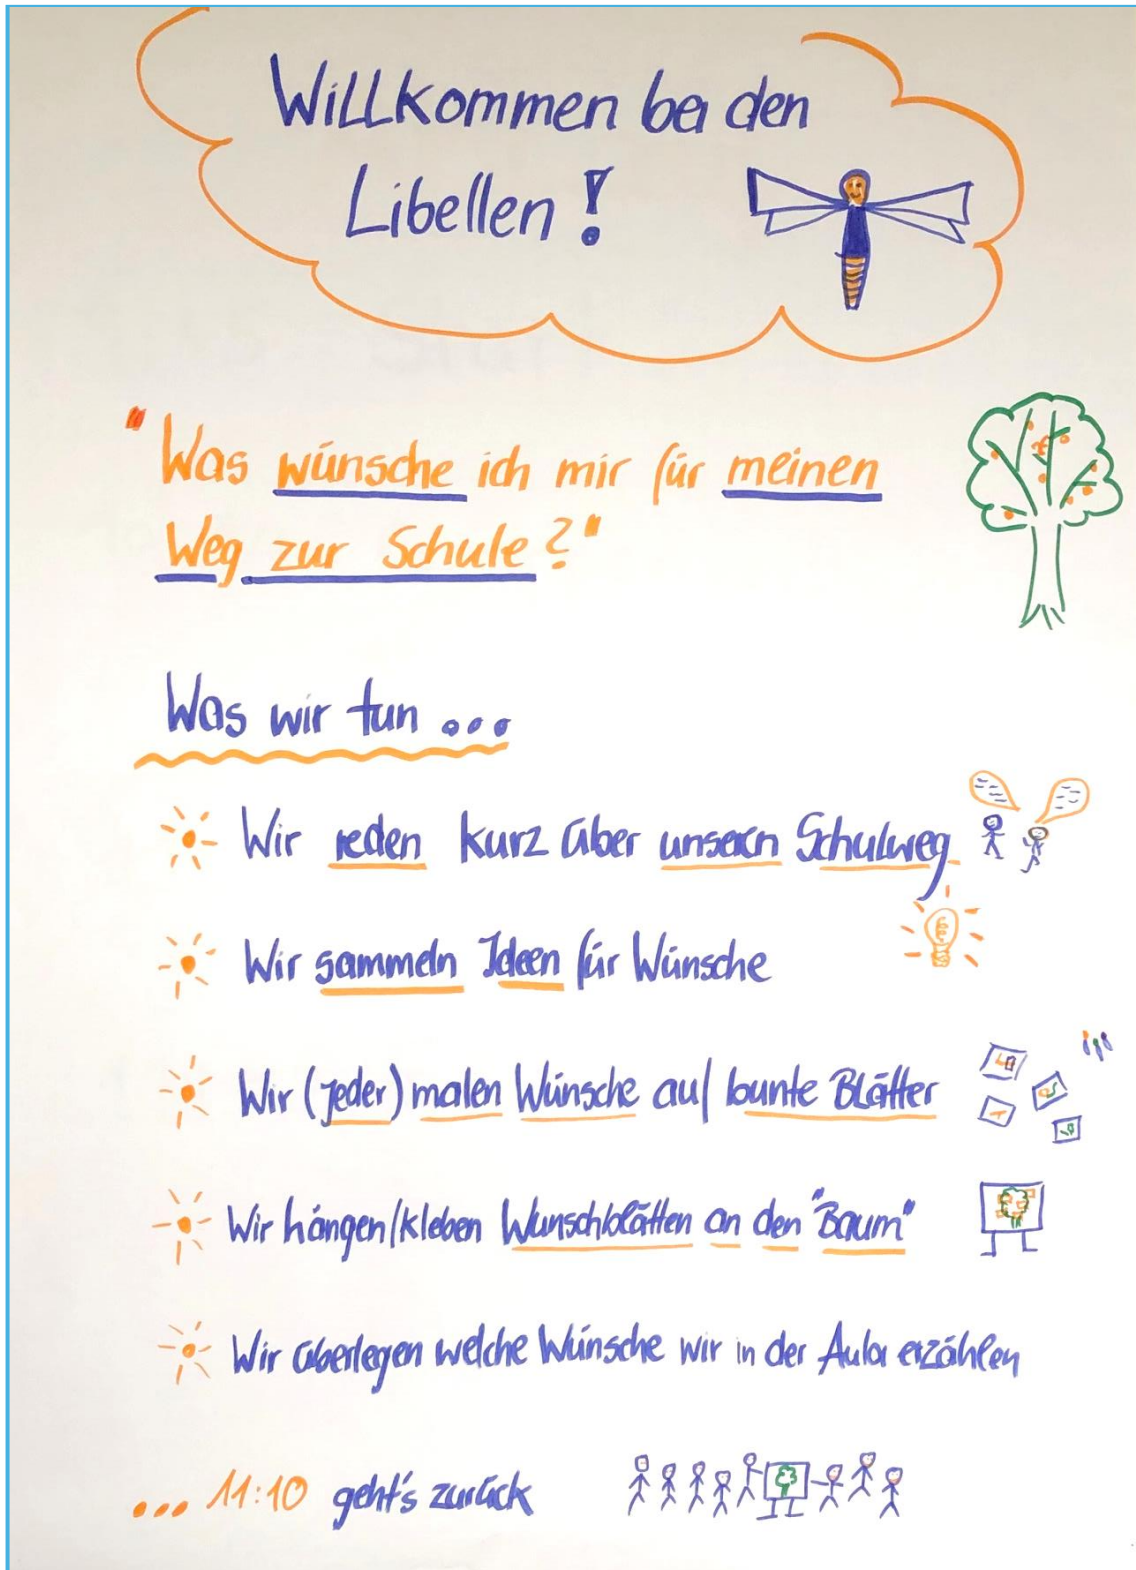 Willkommen bei den
Libellen!
"Was wünsche ich mir für meinen
Weg zur Schule?"
Was wir tun ...
Wir reden kurz über unsern Schulweg
Wir sammeln Ideen für Wünsche
Wir (jeder) malen Wünsche auf bunte Blätter
Wir hängen/kleben Wunschblätter an den "Baum"
Wir überlegen welche Wünsche wir in der Aula erzählen
... 11:10 geht's zurück